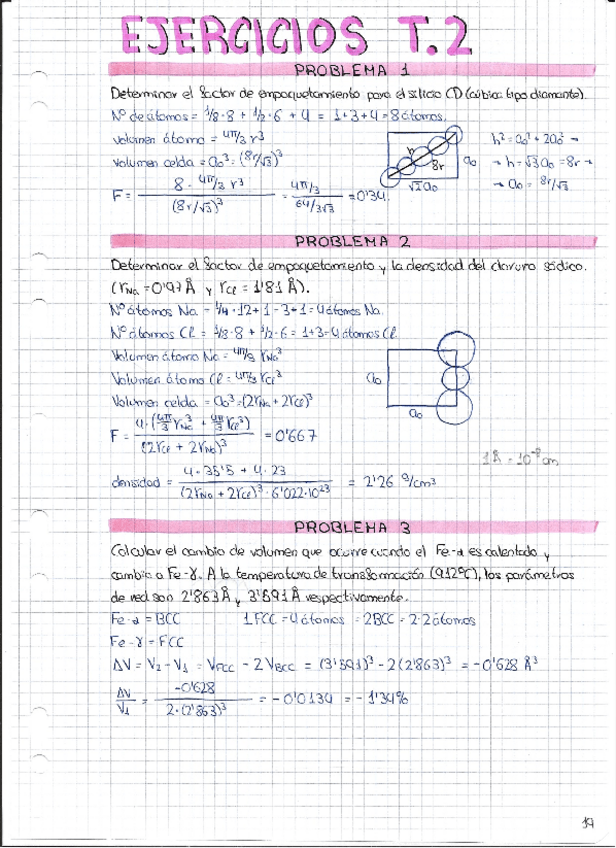 EJERCICIOS T.2
PROBLEMA 1
Determinar el factor de empaquetamiento para el silicio CD (cúbica tipo diamante).
Nº de átomos = 1/8·8 + 1/2·6 + 4 = 1+3+4 = 8 átomos.
Volumen átomo = 4π/3 r³
Volumen celda = a₀³ = (8r/√3)³
F = 8·4π/3 r³ / (8r/√3)³ = 4π/3 / 64/3√3 = 0'34.
h
8r
a₀
√2a₀
h² = a₀² + 2a₀² →
→ h = √3 a₀ = 8r →
→ a₀ = 8r/√3
PROBLEMA 2
Determinar el factor de empaquetamiento y la densidad del cloruro sódico.
(rNa = 0'97 Å y rCl = 1'81 Å).
Nº átomos Na = 1/4·12 + 1 = 3+1 = 4 átomos Na.
Nº átomos Cl = 1/8·8 + 1/2·6 = 1+3 = 4 átomos Cl
Volumen átomo Na = 4π/3 rNa³
Volumen átomo Cl = 4π/3 rCl³
Volumen celda = a₀³ = (2rNa + 2rCl)³
F = 4·(4π/3 rNa³ + 4π/3 rCl³) / (2rCl + 2rNa)³ = 0'667
a₀
a₀
1Å = 10⁻⁸ cm
densidad = 4·35'5 + 4·23 / (2rNa + 2rCl)³·6'022·10²³ = 2'26 g/cm³
PROBLEMA 3
Calcular el cambio de volumen que ocurre cuando el Fe-α es calentado y
cambia a Fe-γ. A la temperatura de transformación (912ºC), los parámetros
de red son 2'863Å y 3'591Å respectivamente.
Fe-α = BCC 1FCC = 4 átomos = 2BCC = 2·2 átomos
Fe-γ = FCC
ΔV = V₂ - V₁ = VFCC - 2VBCC = (3'591)³ - 2(2'863)³ = -0'628 Å³
ΔV/V₁ = -0'628 / 2·(2'863)³ = -0'0134 = -1'34%